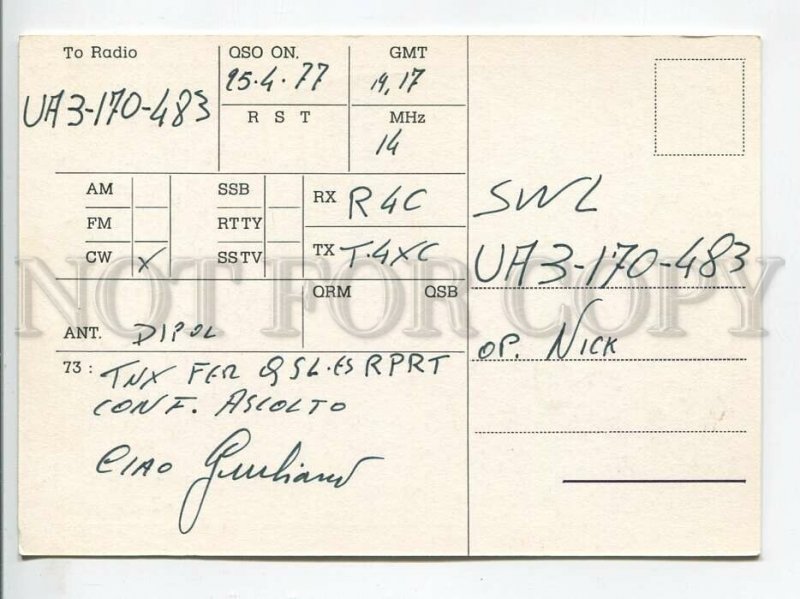 To Radio
UA3-170-483
QSO ON.
25.4.77
GMT
19,17
R S T
MHz
14
AM
FM
CW X
SSB
RTTY
SSTV
RX R4C
TX T.4XC
ANT. DIPOL
QRM QSB
73: TNX FER QSL.ES RPRT
CONF. ASCOLTO
CIAO Giuliano
SWL
UA3-170-483
OP. NICK
NOT FOR COPY